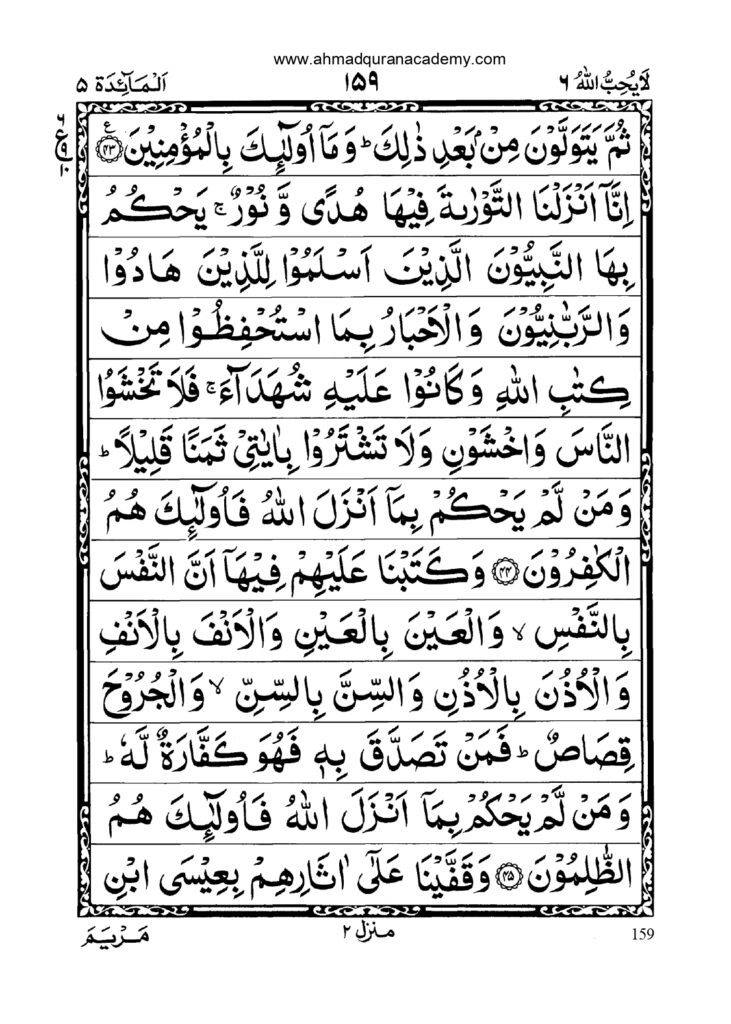 www.ahmadquranacademy.com
لَا يُحِبُّ اللهُ ٦ ١٥٩ اَلْمَآئِدَة ٥
ثُمَّ يَتَوَلَّوْنَ مِنْۢ بَعْدِ ذٰلِكَ ؕ وَمَاۤ اُولٰٓئِكَ بِالْمُؤْمِنِيْنَ ۧ﴿۴۳﴾
اِنَّاۤ اَنْزَلْنَا التَّوْرٰىةَ فِيْهَا هُدًى وَّ نُوْرٌ ۚ يَحْكُمُ
بِهَا النَّبِيُّوْنَ الَّذِيْنَ اَسْلَمُوْا لِلَّذِيْنَ هَادُوْا
وَالرَّبّٰنِيُّوْنَ وَالْاَحْبَارُ بِمَا اسْتُحْفِظُوْا مِنْ
كِتٰبِ اللهِ وَكَانُوْا عَلَيْهِ شُهَدَآءَ ۚ فَلَا تَخْشَوُا
النَّاسَ وَاخْشَوْنِ وَلَا تَشْتَرُوْا بِاٰيٰتِيْ ثَمَنًا قَلِيْلًا ؕ
وَمَنْ لَّمْ يَحْكُمْ بِمَاۤ اَنْزَلَ اللهُ فَاُولٰٓئِكَ هُمُ
الْكٰفِرُوْنَ ﴿۴۴﴾ وَكَتَبْنَا عَلَيْهِمْ فِيْهَاۤ اَنَّ النَّفْسَ
بِالنَّفْسِ ۙ وَالْعَيْنَ بِالْعَيْنِ وَالْاَنْفَ بِالْاَنْفِ
وَالْاُذُنَ بِالْاُذُنِ وَالسِّنَّ بِالسِّنِّ ۙ وَالْجُرُوْحَ
قِصَاصٌ ؕ فَمَنْ تَصَدَّقَ بِهٖ فَهُوَ كَفَّارَةٌ لَّهٗ ؕ
وَمَنْ لَّمْ يَحْكُمْ بِمَاۤ اَنْزَلَ اللهُ فَاُولٰٓئِكَ هُمُ
الظّٰلِمُوْنَ ﴿۴۵﴾ وَقَفَّيْنَا عَلٰۤى اٰثَارِهِمْ بِعِيْسَى ابْنِ
159 منزل ٢ مَرْيَمَ
٦ ع ٩ ١٠